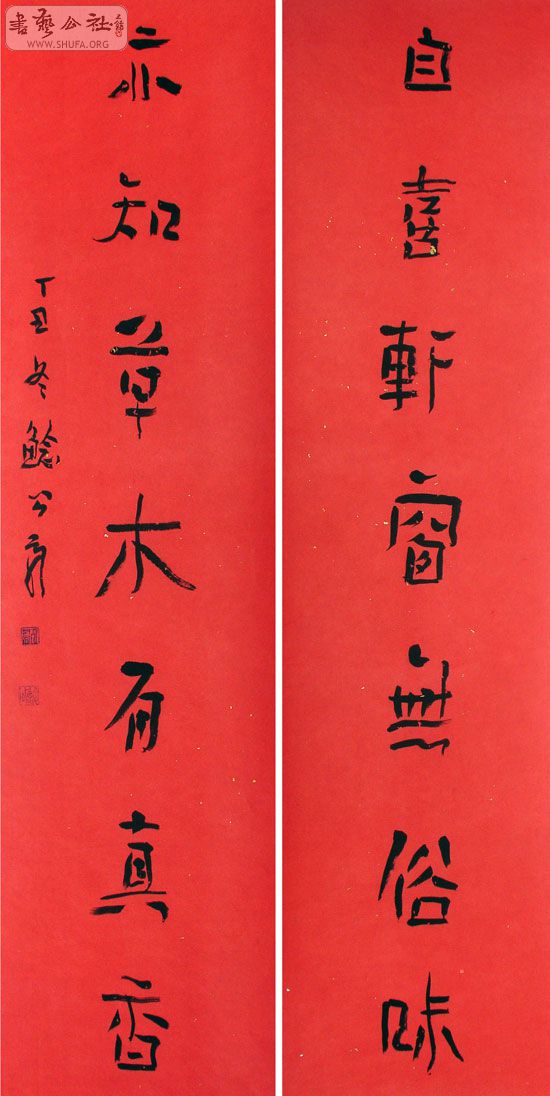 書藝公社
WWW.SHUFA.ORG
自喜軒窗無俗味
亦知草木有真香
丁丑冬